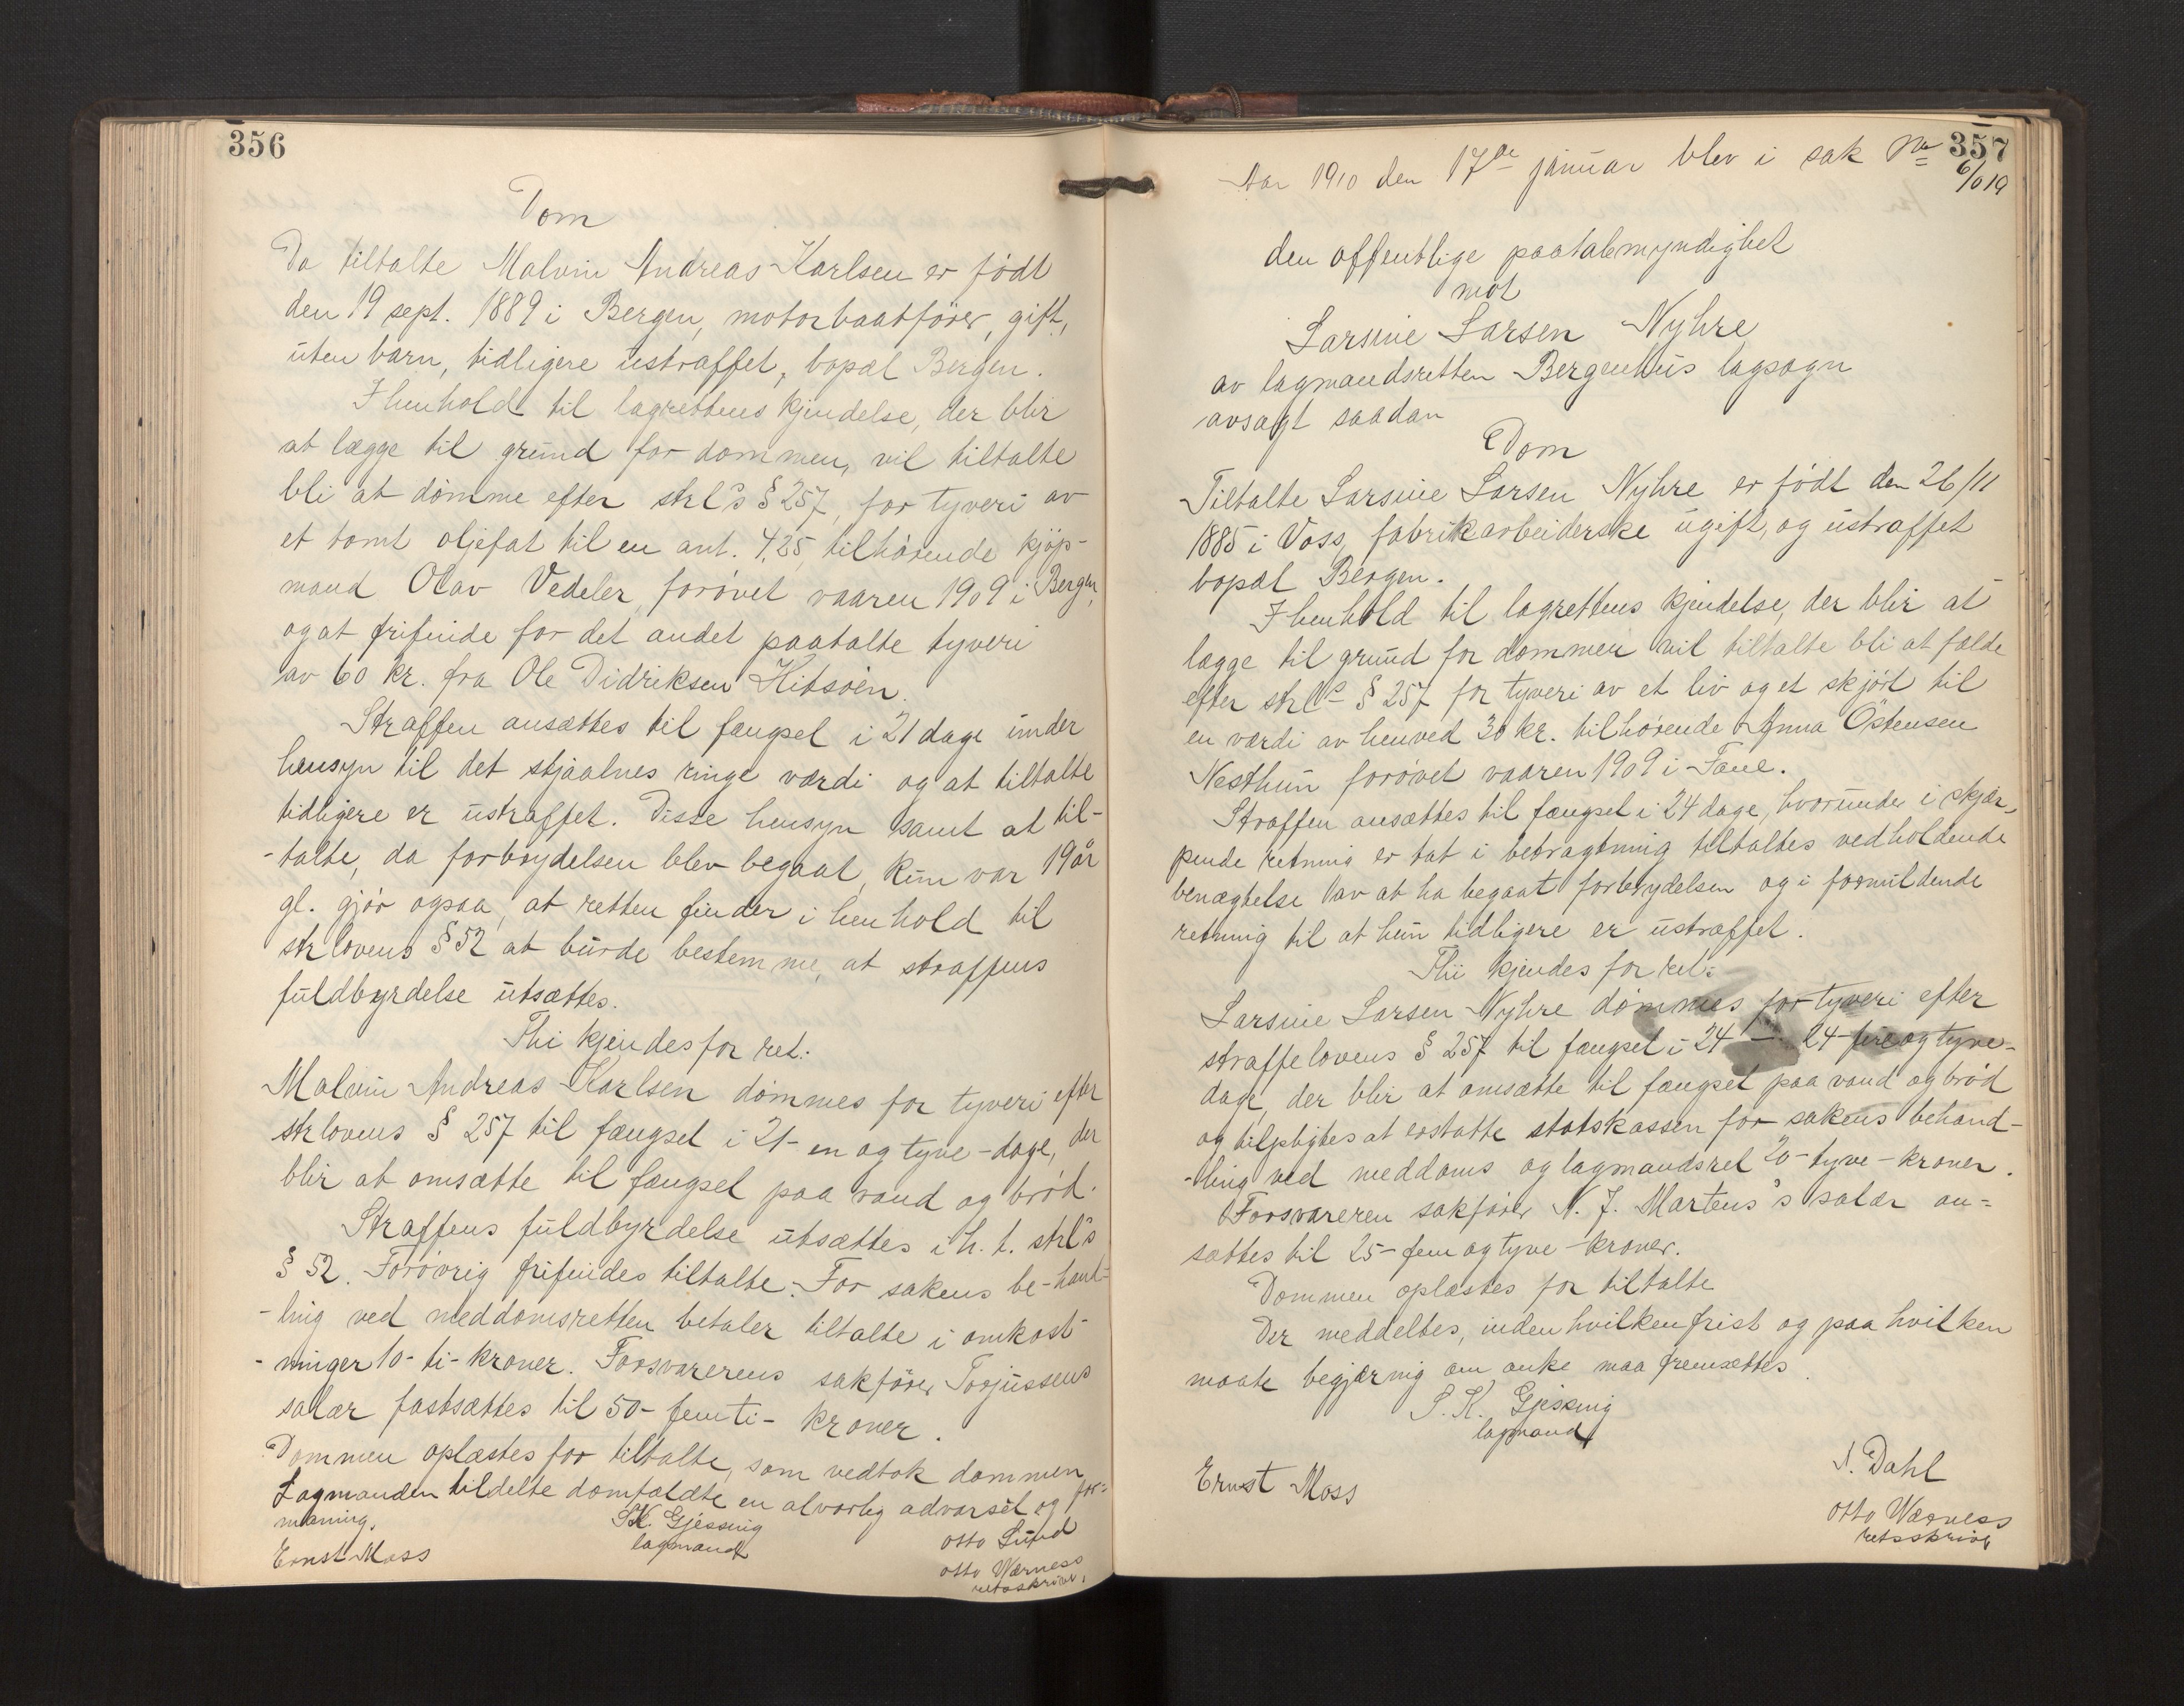 356
Dom
Da tiltalte Malvin Andreas Karlsen er født
den 19 sept. 1889 i Bergen, motorbaatfører, gift,
uten barn, tidligere ustraffet, bopæl Bergen.
I henhold til lagrettens kjendelse, der blir
at lægge til grund for dommen, vil tiltalte
bli at dømme efter strl's § 257, for tyveri av
et tomt oljefat til en ant. 4,25, tilhørende kjøp-
mand Olav Vedeler, forøvet vaaren 1909 i Bergen,
og at frifinde for det andet paatalte tyveri
av 60 kr. fra Ole Didriksen Hitsøen.
Straffen ansættes til fængsel i 21 dage under
hensyn til det stjaalnes ringe værdi og at tiltalte
tidligere er ustraffet. Disse hensyn samt at til-
-talte, da forbrydelsen blev begaat, kun var 19 år
gl. gjør ogsaa, at retten finder i henhold til
strlovens § 52 at burde bestemme, at straffens
fuldbyrdelse utsættes.
Thi kjendes for ret:
Malvin Andreas Karlsen dømmes for tyveri efter
strlovens § 257 til fængsel i 21- en og tyve -dage, der
blir at omsætte til fængsel paa vand og brød.
Straffens fuldbyrdelse utsættes i h. t. strl's
§ 52. Forøvrig frifindes tiltalte. For sakens be-hand-
-ling ved meddomsretten betaler tiltalte i omkost-
-ninger 10- ti- kroner. Forsvarerens sakfører Torjussens
salær fastsættes til 50- femti- kroner.
Dommen oplæstes for tiltalte, som vedtok dommen
Lagmanden tildelte domfældte en alvorlig advarsel og for-
maning.
S.K. Gjessing
lagmand
Ernst Moss
Otto Lund
Otto Wærness
retsskriver.
357
Aar 1910 den 17de januar blev i sak No
6/019
den offentlige paatalemyndighet
mot
Larsine Larsen Nyhre
av lagmandsretten Bergenhus lagsogn
avsagt saadan
Dom
Tiltalte Larsine Larsen Nyhre er født den 26/11
1885 i Voss, fabrikarbeiderske ugift, og ustraffet
bopæl Bergen.
I henhold til lagrettens kjendelse, der blir at
lægge til grund for dommen vil tiltalte bli at fælde
efter strl's § 257 for tyveri av et liv og et skjørt til
en værdi av henved 30 kr. tilhørende Anna Østensen
Nesthun forøvet vaaren 1909 i Fane.
Straffen ansættes til fængsel i 24 dage, hvorunder i skjær-
pende retning er tat i betragtning tiltaltes vedholdende
benægtelse av at ha begaat forbrydelsen og i formildende
retning til at hun tidligere er ustraffet.
Thi kjendes for ret:
Larsine Larsen Nyhre dømmes for tyveri efter
straffelovens § 257 til fængsel i 24 - 24 - fire og tyve-
dage, der blir at omsætte til fængsel paa vand og brød
og tilpligtes at erstatte statskassen for sakens behand-
-ling ved meddoms og lagmandsret 20 - tyve - kroner.
Forsvareren sakfører N. J. Martens's salær an-
sættes til 25 - fem og tyve - kroner.
Dommen oplæstes for tiltalte
Der meddeltes, inden hvilken frist og paa hvilken
maate begjæring om anke maa fremsættes.
S. K. Gjessing
lagmand
Ernst Moss
N. Dahl
Otto Wærness
retsskriver